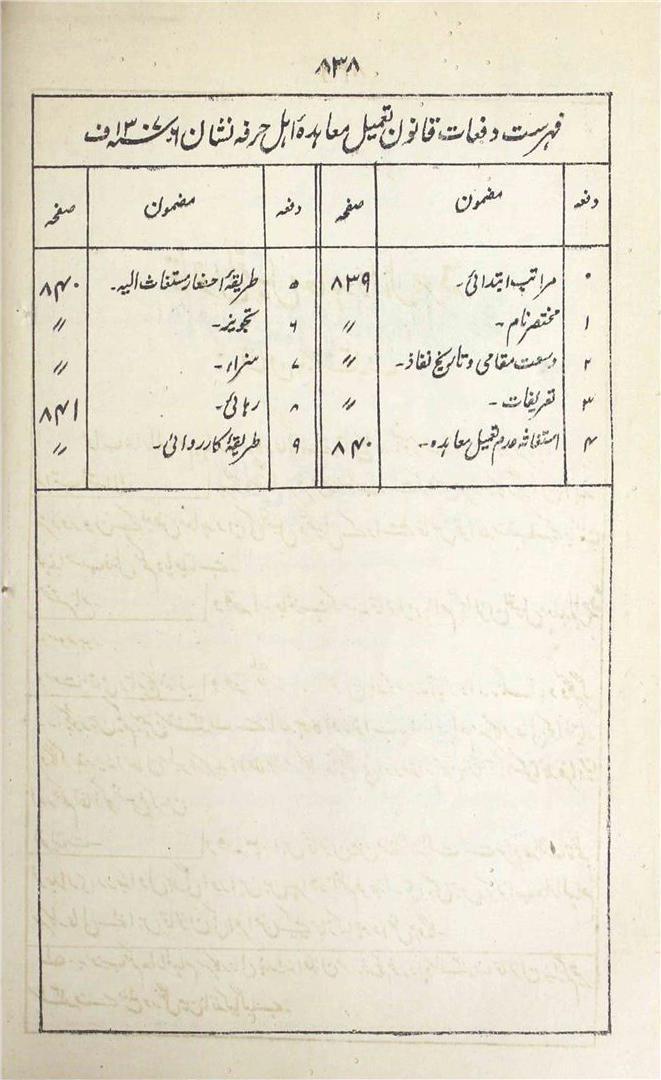 ۸۳۸
فہرست دفعات قانون تعمیل معاہدۂ اہل حرفہ نشان ۶ ۱۳۰۷؁ف
دفعہ مضمون صفحہ دفعہ مضمون صفحہ
۰ مراتب ابتدائی۔ ۸۳۹ ۵ طریقۂ احضار مستغاث الیہ۔ ۸۴۰
۱ مختصر نام۔ 〃 ۶ تجویز۔ 〃
۲ وسعت مقامی و تاریخ نفاذ۔ 〃 ۷ سزا۔ 〃
۳ تعریفات۔ 〃 ۸ رہائی۔ ۸۴۱
۴ استغاثہ عدم تعمیل معاہدہ۔ ۸۴۰ ۹ طریقۂ کارروائی۔ 〃